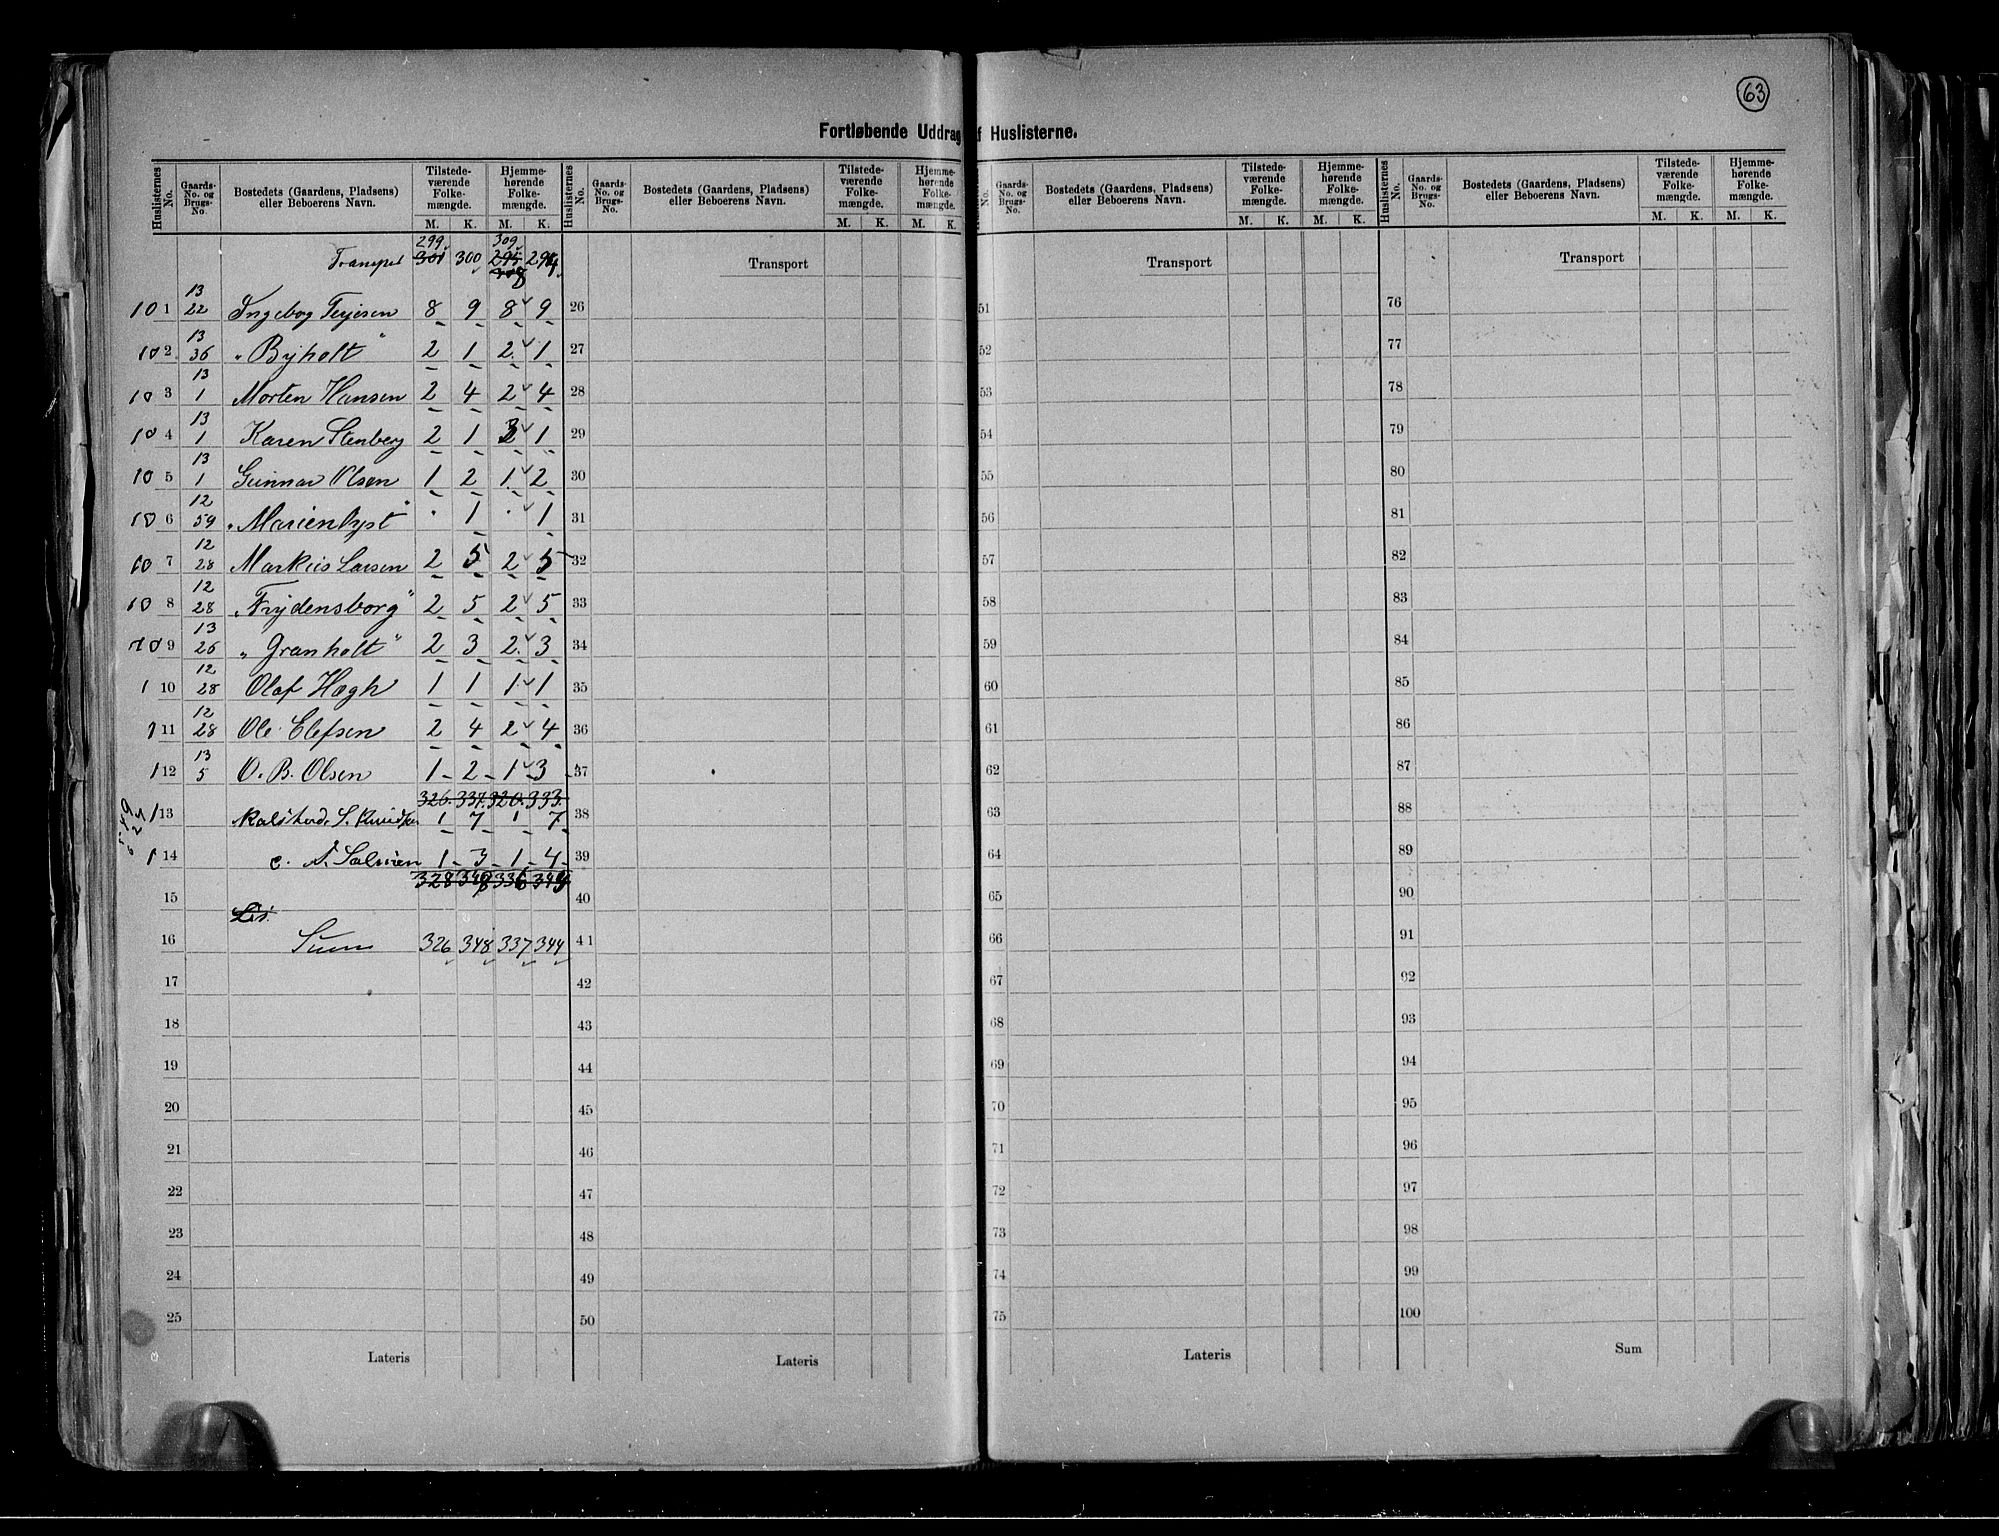 63
Fortløbende Uddrag f Huslisterne.
Huslisternes No. Gaards-No. og Brugs-No. Bostedets (Gaardens, Pladsens) eller Beboerens Navn. Tilstede-værende Folke-mængde. M. K. Hjemme-hørende Folke-mængde. M. K.
Huslisternes No. Gaards-No. og Brugs-No. Bostedets (Gaardens, Pladsens) eller Beboerens Navn. Tilstede-værende Folke-mængde. M. K. Hjemme-hørende Folke-mængde. M. K.
No. Gaards-No. og Brugs-No. Bostedets (Gaardens, Pladsens) eller Beboerens Navn. Tilstede-værende Folke-mængde. M. K. Hjemme-hørende Folke-mængde. M. K.
Huslisternes No. Gaards-No. og Brugs-No. Bostedets (Gaardens, Pladsens) eller Beboerens Navn. Tilstede-værende Folke-mængde. M. K. Hjemme-hørende Folke-mængde. M. K.
299 309
301 300 295 294
308
10 1 13 22 Ingebog Terjesen 8 9 8 9
10 2 13 36 "Byholt" 2 1 2 1
10 3 13 1 Morten Hansen 2 4 2 4
10 4 13 1 Karen Stenberg 2 1 3 1
10 5 13 1 Gunnar Olsen 1 2 1 2
10 6 12 59 "Marienlyst" . 1 . 1
10 7 12 28 Markus Larsen 2 5 2 5
10 8 12 28 "Frydensborg" 2 5 2 5
10 9 13 26 "Granholt" 2 3 2 3
1 10 12 28 Olaf Høgh 1 1 1 1
1 11 12 28 Ole Elefsen 2 4 2 4
1 12 13 5 O. B. Olsen 1 2 1 3
326 337 320 333
1 13 1 7 1 7
1 14 1 3 1 4
15
16 Sum 326 348 337 344
17
18
19
20
21
22
23
24
25
Lateris
Transport
26
27
28
29
30
31
32
33
34
35
36
37
38
39
40
41
42
43
44
45
46
47
48
49
50
Lateris
Transport
51
52
53
54
55
56
57
58
59
60
61
62
63
64
65
66
67
68
69
70
71
72
73
74
75
Lateris
Transport
76
77
78
79
80
81
82
83
84
85
86
87
88
89
90
91
92
93
94
95
96
97
98
99
100
Sum